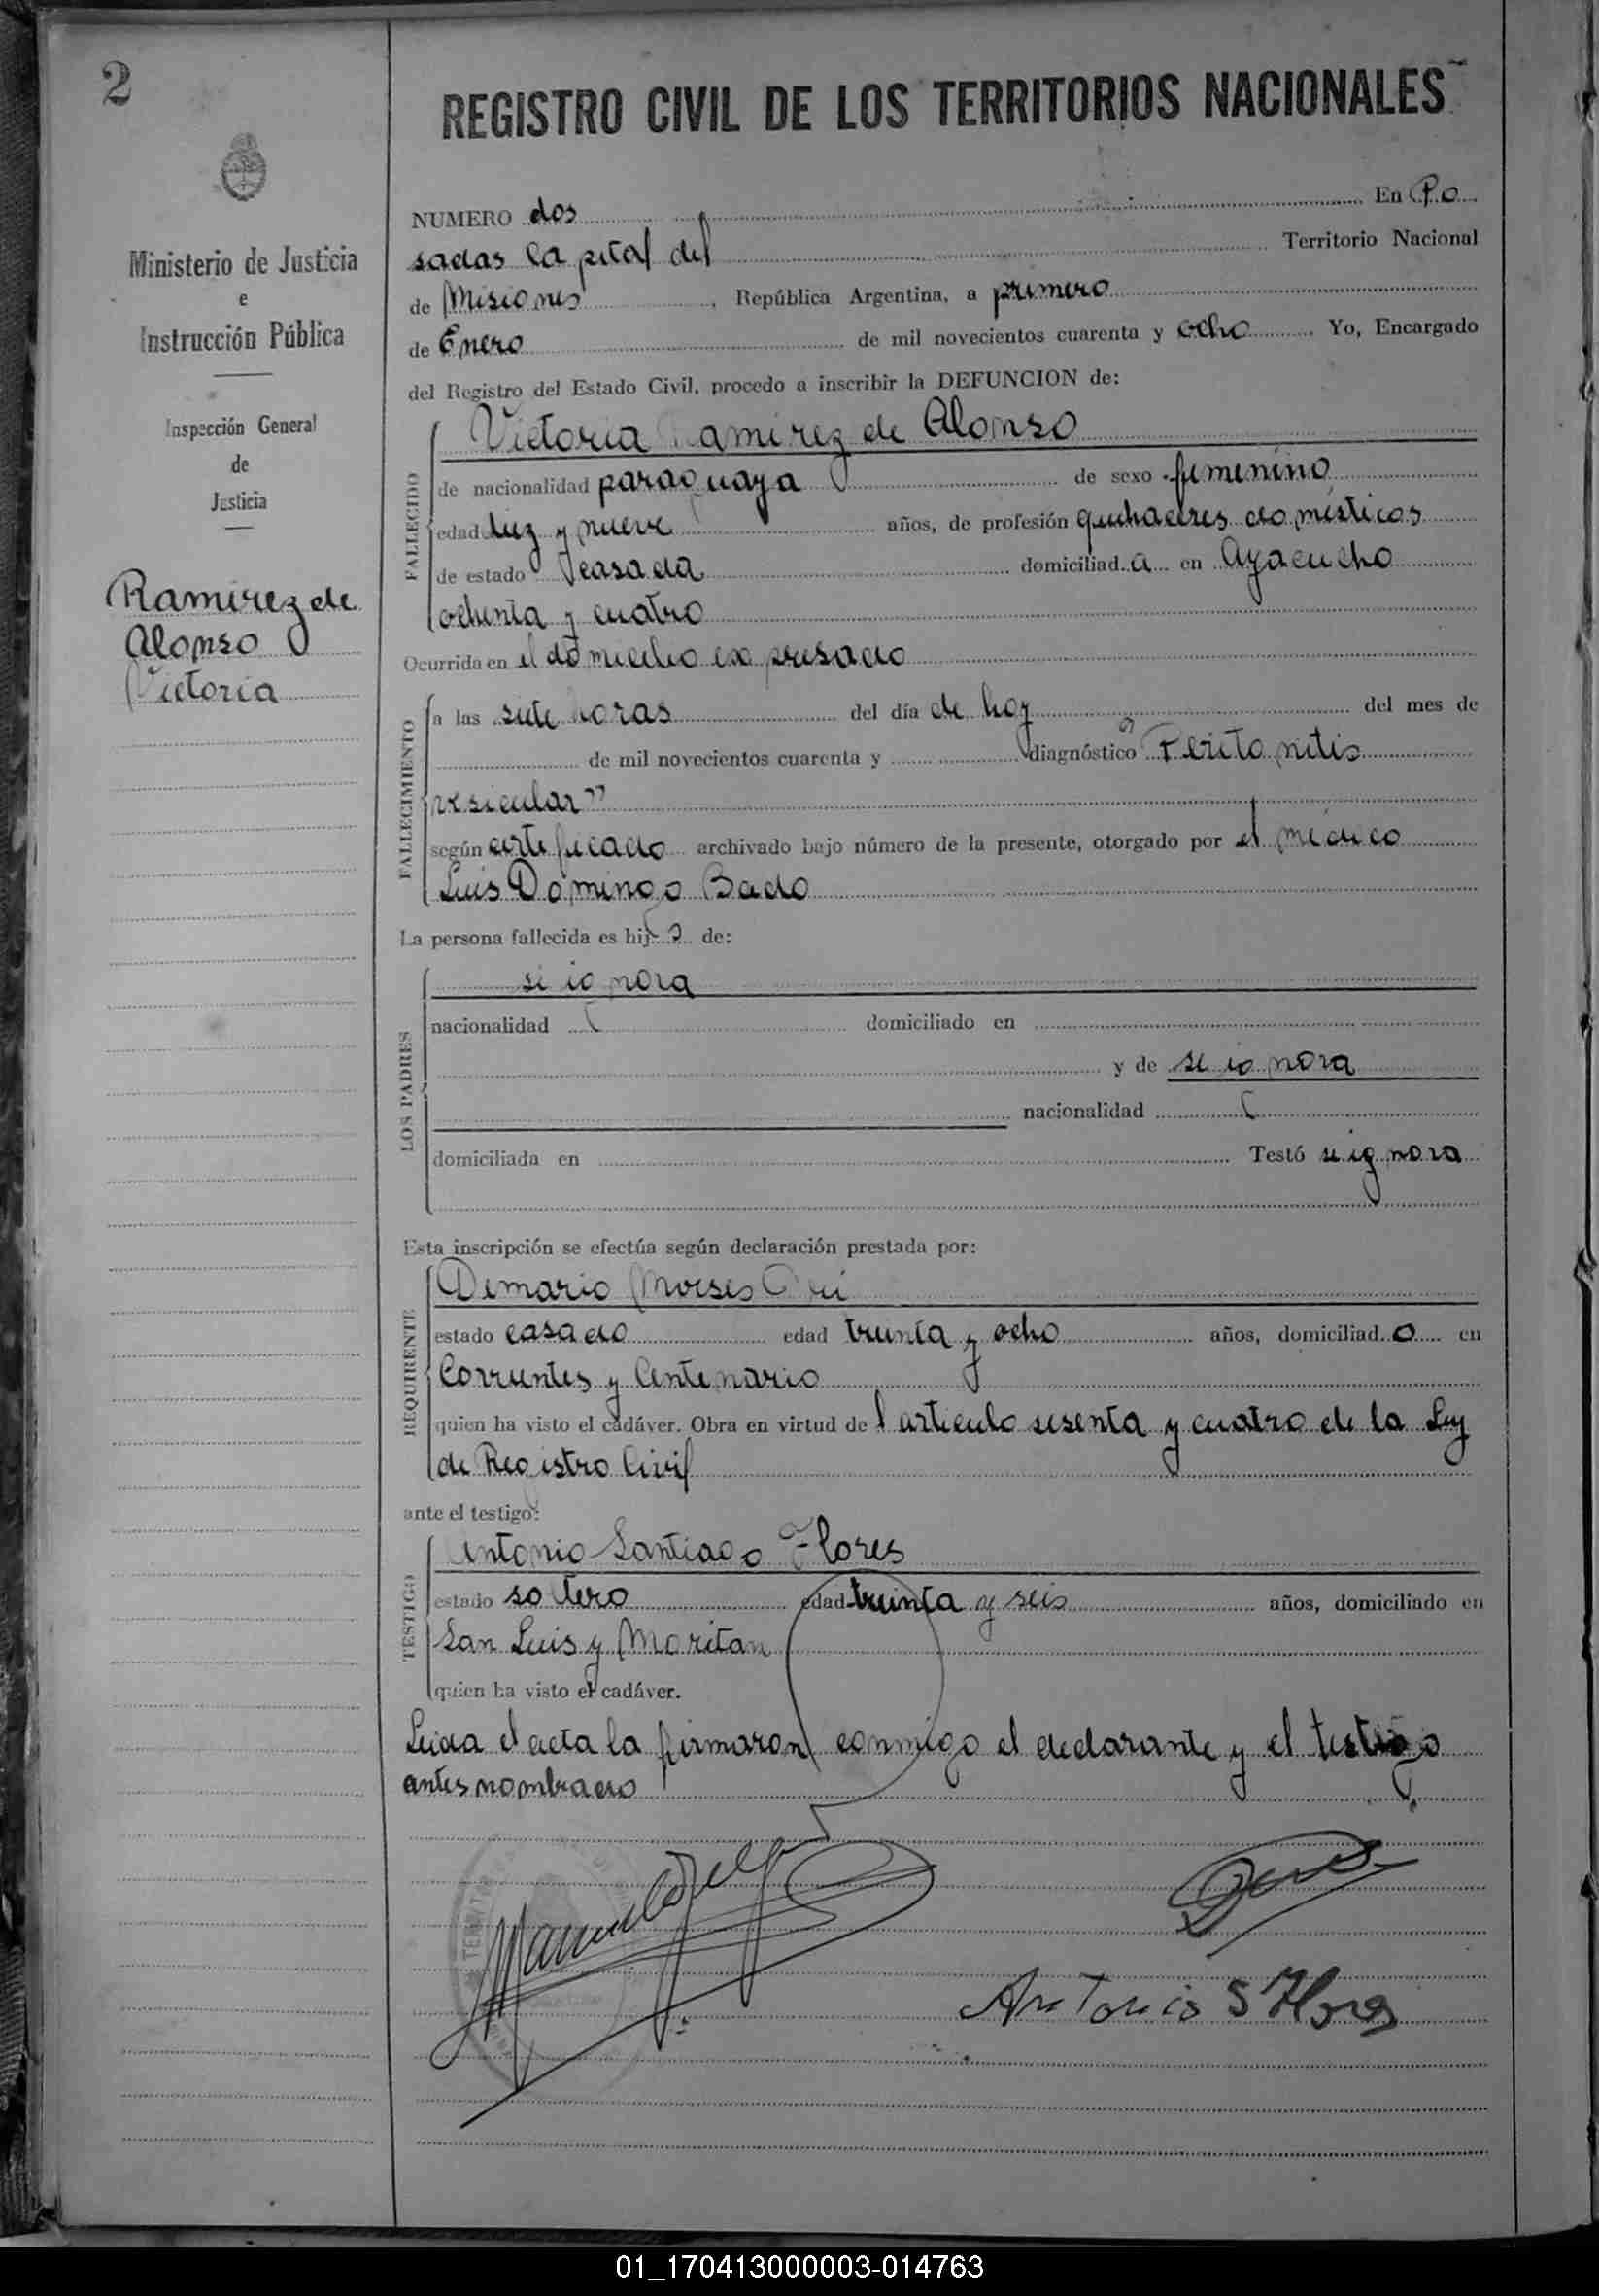 2
REGISTRO CIVIL DE LOS TERRITORIOS NACIONALES
Ministerio de Justicia
e
Instrucción Pública
Inspección General
de
Justicia
Ramirez de
Alonso
Victoria
NUMERO dos En Po
sadas Capital del Territorio Nacional
de Misiones, República Argentina, a primero
de Enero de mil novecientos cuarenta y ocho. Yo, Encargado
del Registro del Estado Civil, procedo a inscribir la DEFUNCION de:
FALLECIDO
Victoria Ramirez de Alonso
de nacionalidad paraguaya de sexo femenino
edad diez y nueve años, de profesión quehaceres domésticos
de estado casada domiciliad a en Ayacucho
ochenta y cuatro
Ocurrida en el domicilio expresado
FALLECIMIENTO
a las siete horas del día de hoy del mes de
de mil novecientos cuarenta y diagnóstico Peritonitis
vesicular"
según certificado archivado bajo número de la presente, otorgado por el médico
Luis Domingo Bado
La persona fallecida es hij a de:
LOS PADRES
se ignora
nacionalidad domiciliado en
y de se ignora
nacionalidad
domiciliada en Testó se ignora
Esta inscripción se efectúa según declaración prestada por:
REQUIRENTE
Demario Moises
estado casado edad treinta y ocho años, domiciliad o en
Corrientes y Centenario
quien ha visto el cadáver. Obra en virtud del articulo sesenta y cuatro de la Ley
de Registro Civil
ante el testigo:
TESTIGO
Antonio Santiago Flores
estado soltero edad treinta y seis años, domiciliado en
San Luis y Moritan
quien ha visto el cadáver.
Leida el acta la firmaron conmigo el declarante y el testigo
antes nombrado
Antonio S Flores
01_170413000003-014763